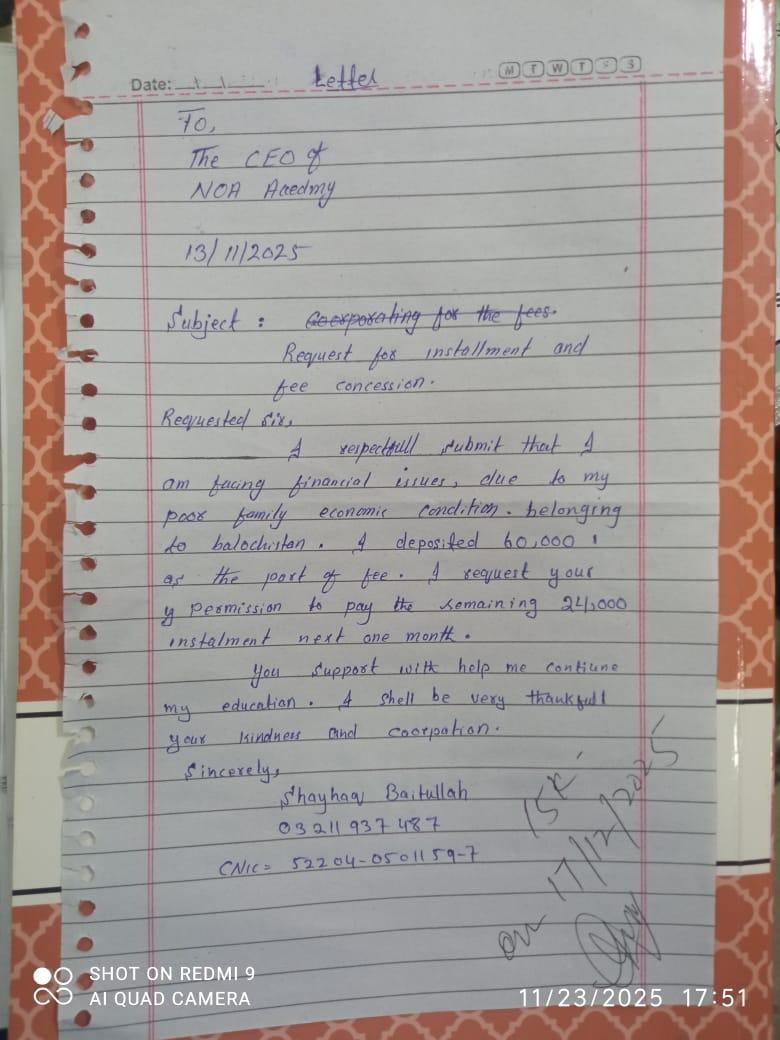 Date:
Letter
M T W T F S
To,
The CEO of
NOA Acedmy
13/11/2025
Subject : Coorporating for the fees.
Request for installment and
fee concession.
Requested sir,
I respectfull submit that I
am facing financial issues, due to my
poor family economic condition. belonging
to balochistan. I deposited 60,000
as the part of fee. I request your
y permission to pay the remaining 24,000
instalment next one month.
You support with help me contiune
my education. I shell be very thankfull
your kindness and coorpation.
Sincerely,
Shayhaq Baitullah
03211937487
CNIC = 52204-0501159-7
15K
on 17/12/2025
SHOT ON REDMI 9
AI QUAD CAMERA
11/23/2025 17:51